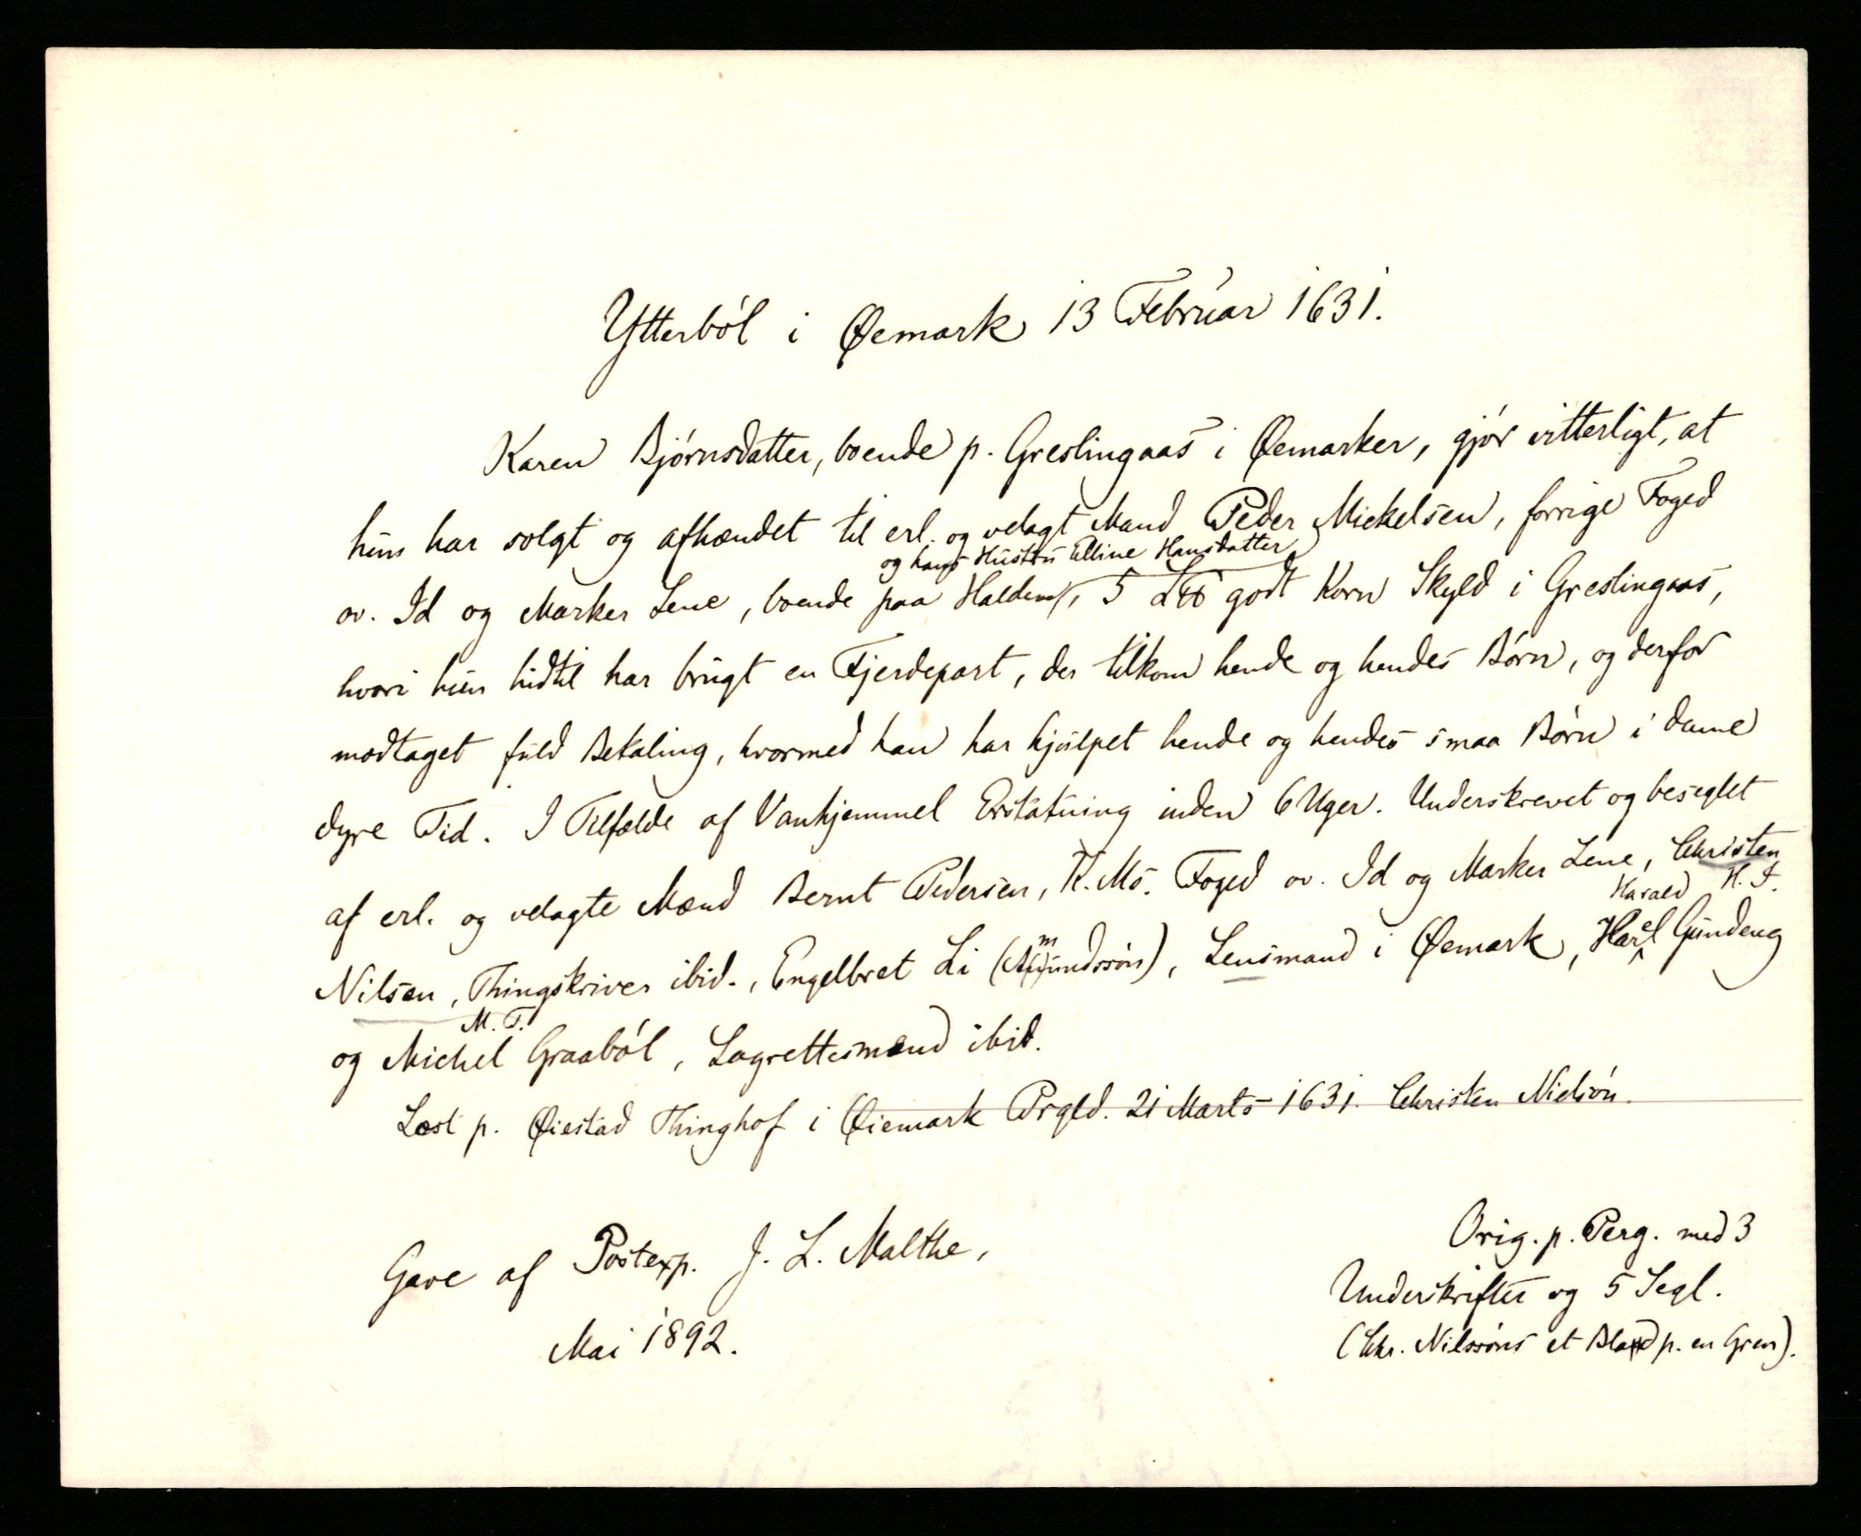 Ytterból i Øemark 13 Februar 1631.
Karen Bjórnsdatter, boende p. Greslingaas i Øemarker, gjór vitterligt, at
hun har solgt og afhændet til erl. og velagt Mand Peder Mickelsen, forrige Foged
og hans Hustru Elline Hansdatter
ov. Id og Marker Lene, boende paa Halden, 5 L℔ godt Korn Skyld i Greslingaas,
hvori hun hidtil har brugt en Fjerdepart, der tilkom hende og hendes Bórn, og derfor
modtaget fuld Betaling, hvormed han har hjulpet hende og hendes smaa Bórn i denne
dyre Tid. I Tilfælde af Vanhjemmel Erstatning inden 6 Uger. Underskrevet og beseglet
af erl. og velagte Mænd Bernt Pedersen, K. Ms. Foged ov. Id og Marker Lene, Christen
Harald H. I.
Nilsen, Thingskriver ibid., Engelbret Li (Amundssón), Lensmand i Øemark, Harel Gundeng
M. T.
og Michel Graaból, Lagrettesmænd ibid.
Læst p. Øiestad Thinghof i Øiemark Prgld. 21 Marts 1631. Christen Nielsón.
Gave af Postexp. J. L. Malthe,
Mai 1892.
Orig. p. Perg. med 3
Underskrifter og 5 Segl.
(Chr. Nilssóns et Blad p. en Gren).